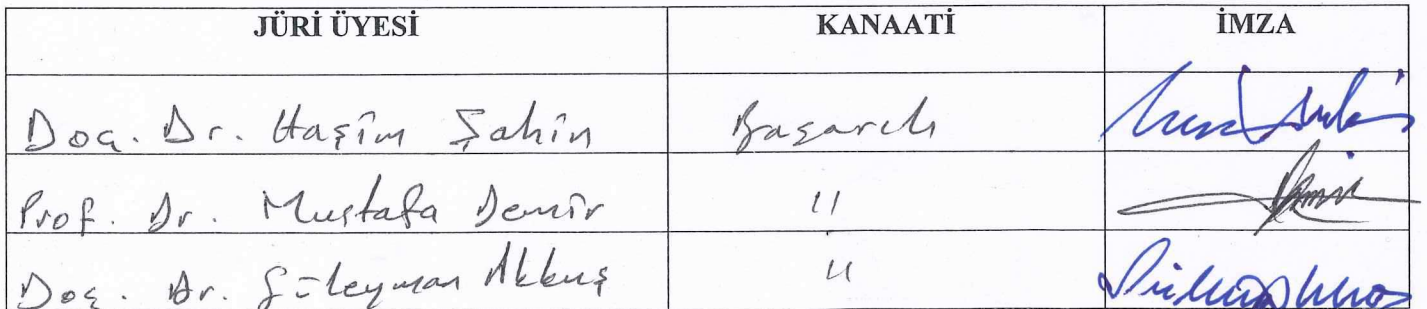 JÜRİ ÜYESİ KANAATİ İMZA
Doç. Dr. Haşim Şahin Başarılı
Prof. Dr. Mustafa Demir "
Doç. Dr. Süleyman Akkuş "